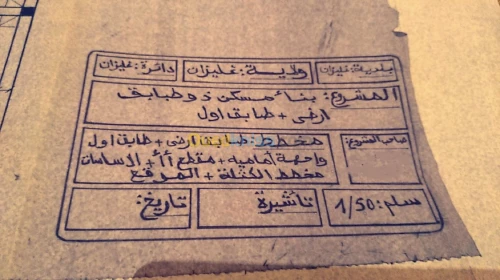 بلدية: غليزان
ولاية: غليزان
دائرة: غليزان
المشروع: بناء مسكن ذو طابق
ارضي + طابق اول
مخطط: طابق ارضي + طابق اول
واجهة أمامية + مقطع أأ + الاساسات
مخطط الكتلة + الموقع
صاحب المشروع:
سلم: 1/50
تأشيرة
تاريخ: